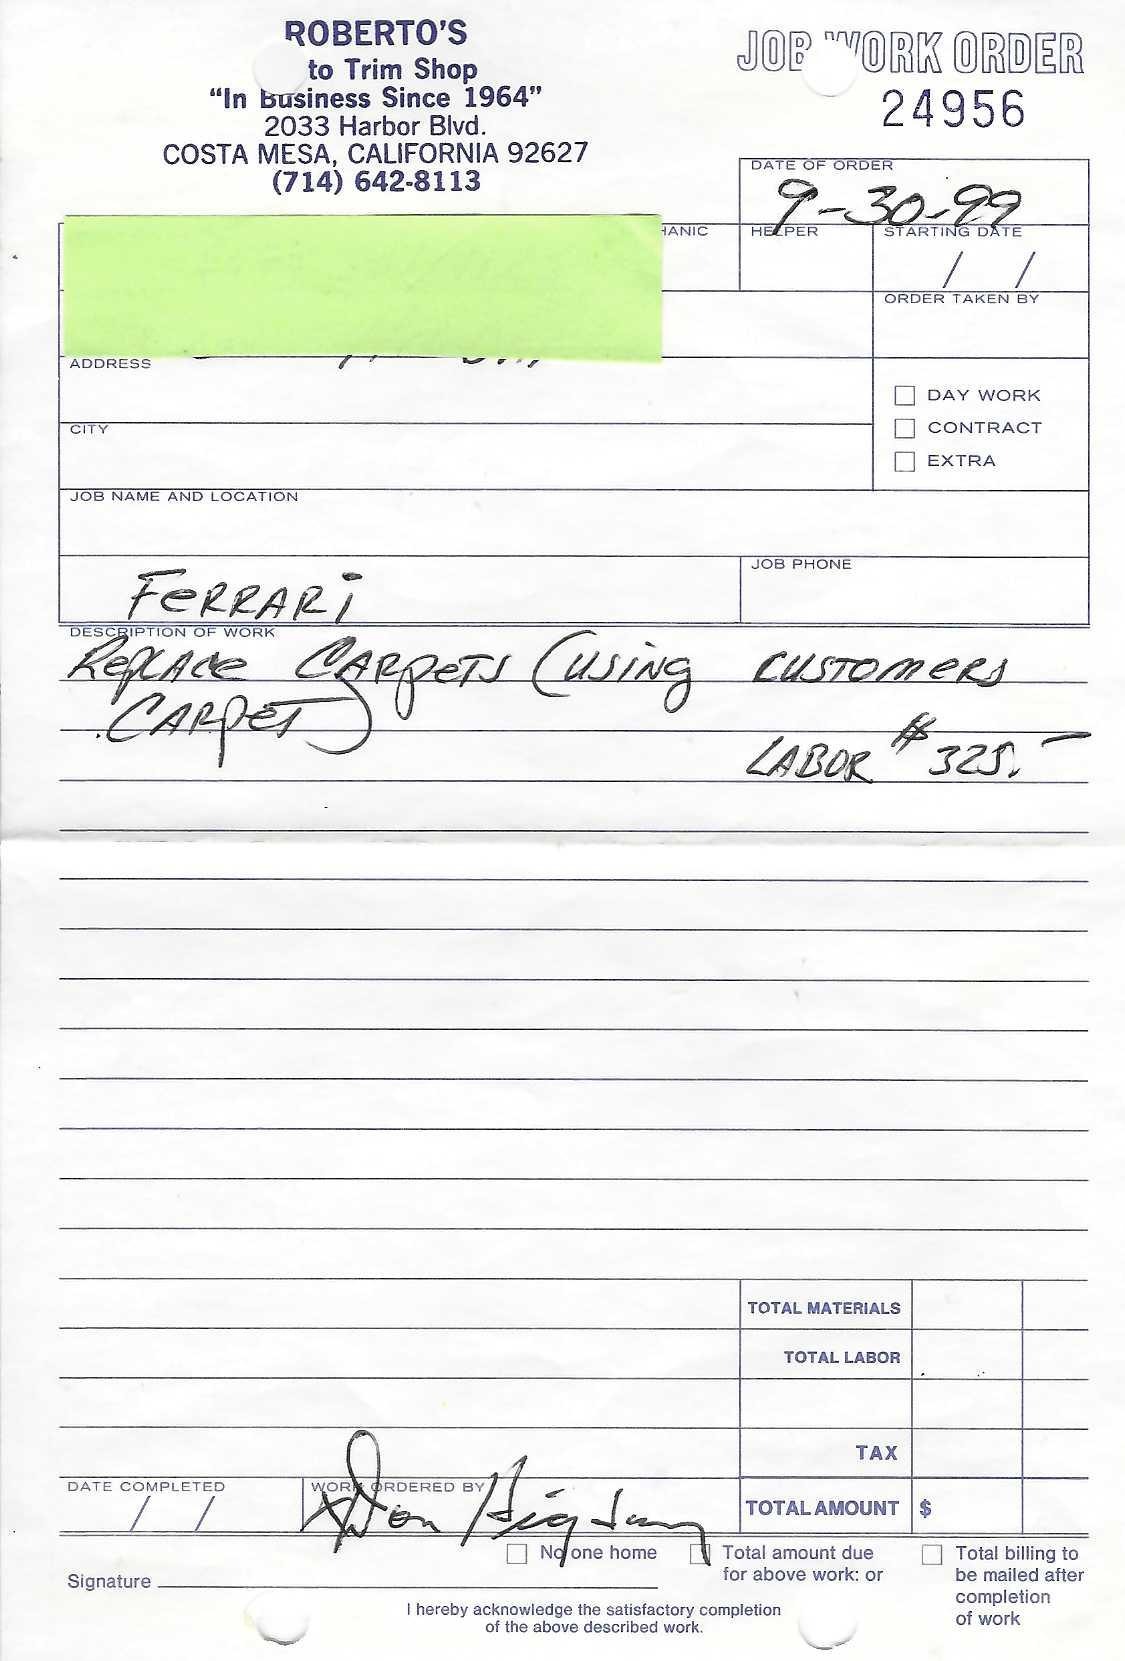 ROBERTO'S
to Trim Shop
"In Business Since 1964"
2033 Harbor Blvd.
COSTA MESA, CALIFORNIA 92627
(714) 642-8113
JOB WORK ORDER
24956
DATE OF ORDER
9-30-99
HANIC
HELPER
STARTING DATE
/ /
ORDER TAKEN BY
ADDRESS
DAY WORK
CONTRACT
EXTRA
CITY
JOB NAME AND LOCATION
JOB PHONE
FERRARI
DESCRIPTION OF WORK
REPLACE CARPETS (USING CUSTOMERS
CARPET)
LABOR $325.—
TOTAL MATERIALS
TOTAL LABOR
TAX
TOTAL AMOUNT $
DATE COMPLETED
/ /
WORK ORDERED BY
X Don
No one home
Total amount due
for above work: or
Total billing to
be mailed after
completion
of work
Signature
I hereby acknowledge the satisfactory completion
of the above described work.